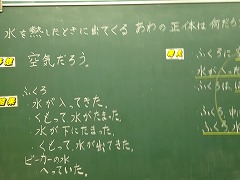 水を熱したときに出てくるあわの正体は何だろ
予想
空気だろう。
結果
ふくろ
・水が入ってきた。
・くもって水がたまった。
・水が下にたまった。
・くもって、水が出てきた。
ビーカーの水
へっていた。
考え
ふくろに
水が入った
ふくろは